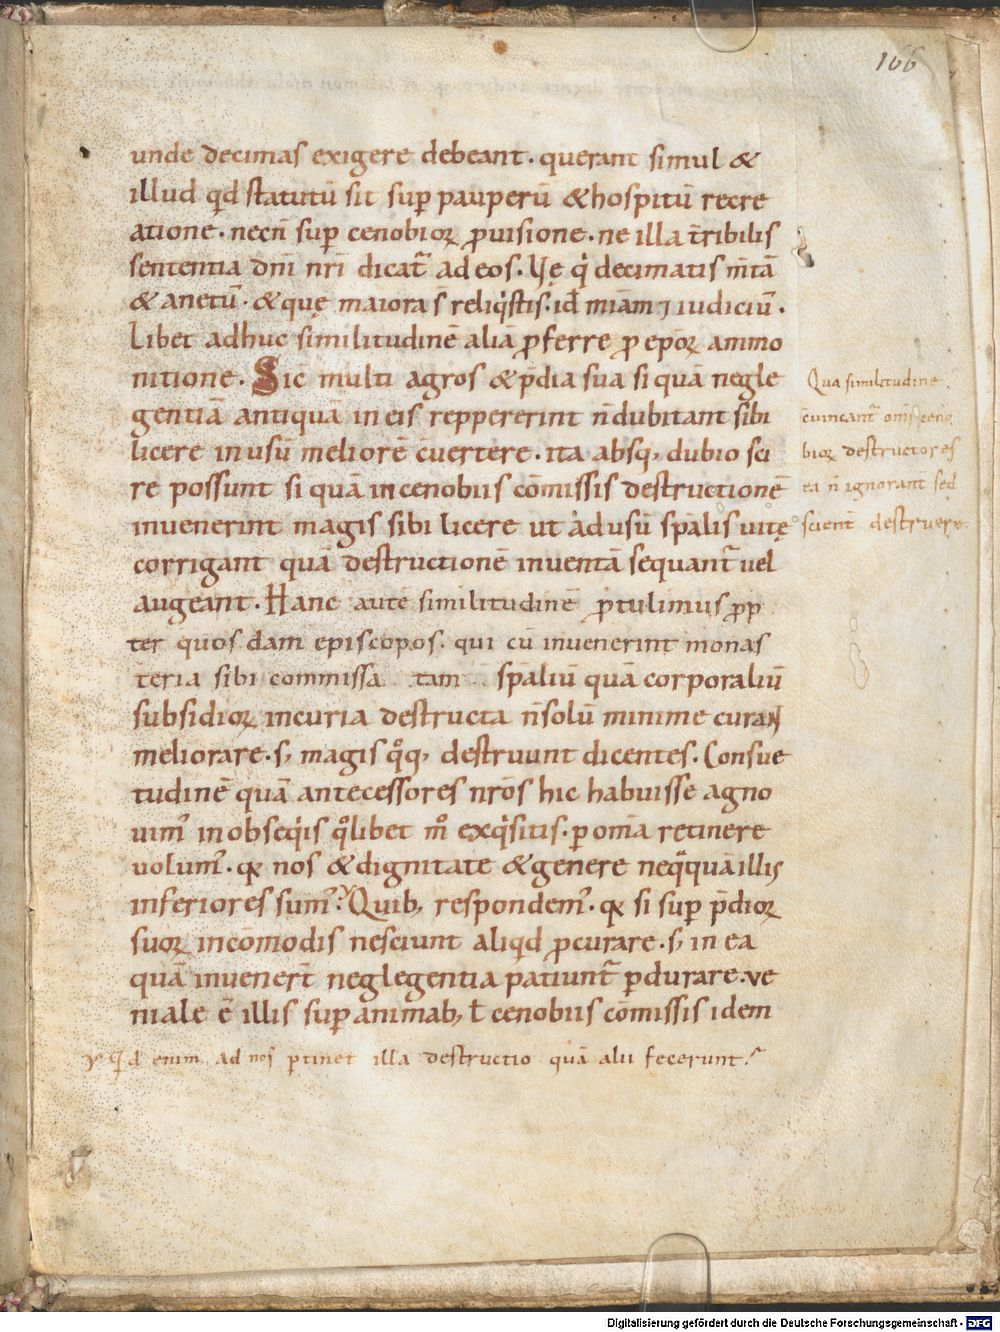 166
unde decimas exigere debeant. querant simul &
illud qd statutū sit sup pauperū & hospitū recre
atione. necn̄ sup cenobioꝝ ꝓuisione. ne illa t̄ribilis
sententia dn̄i nr̄i dicat᷑ ad eos. Ve q decimatis m̄tā
& anetū. & quę maiora s̄ reliqistis. id miām ⁊ iudiciū.
Libet adhuc similitudinē aliā ꝓferre ꝓ epōꝝ ammo
nitione. Sic̄ multi agros & p̄dia sua si quā negle
gentiā antiquā in eis reppererint n̄ dubitant sibi
licere in usū meliorē c̄uertere. ita absq; dubio sci
re possunt si quā in cenobiis cōmissis destructionē
inuenerint magis sibi licere ut ad usū sp̄alis uitę
corrigant quā destructionē inuentā sequant᷑ uel
augeant. Hanc autē similitudinē ꝓtulimus ꝓp
ter quosdam episcopos. qui cū inuenerint monas
teria sibi commissa tam sp̄aliū quā corporaliū
subsidioꝝ incuria destructa n̄ solū minime curant
meliorare. s; magis qoq; destruunt dicentes. Consue
tudinē quā antecessores nr̄os hic habuisse agno
uim᷒ in obseqiis qlibet m̊ exqisitis. ꝑ om̄a retinere
volum᷒. qꝫ nos & dignitate & genere neqquā illis
inferiores sum᷒. Quib; respondem᷒. qꝫ si sup p̄dioꝝ
suoꝝ incōmodis nesciunt aliqd ꝓcurare. s; in ea
quā inuener̄t neglegentia patiunt᷑ ꝑdurare. ve
niale ē illis sup animab; ł cenobiis cōmissis idem
Qd enim ad nos ꝑtinet illa destructio quā alii fecerunt.
Qua similitudine
c̄uincant᷑ om̄s ceno
bioꝝ destructores
ea n̄ ignorant᷑ sed
scient᷑ destruere.
Digitalisierung gefördert durch die Deutsche Forschungsgemeinschaft - DFG